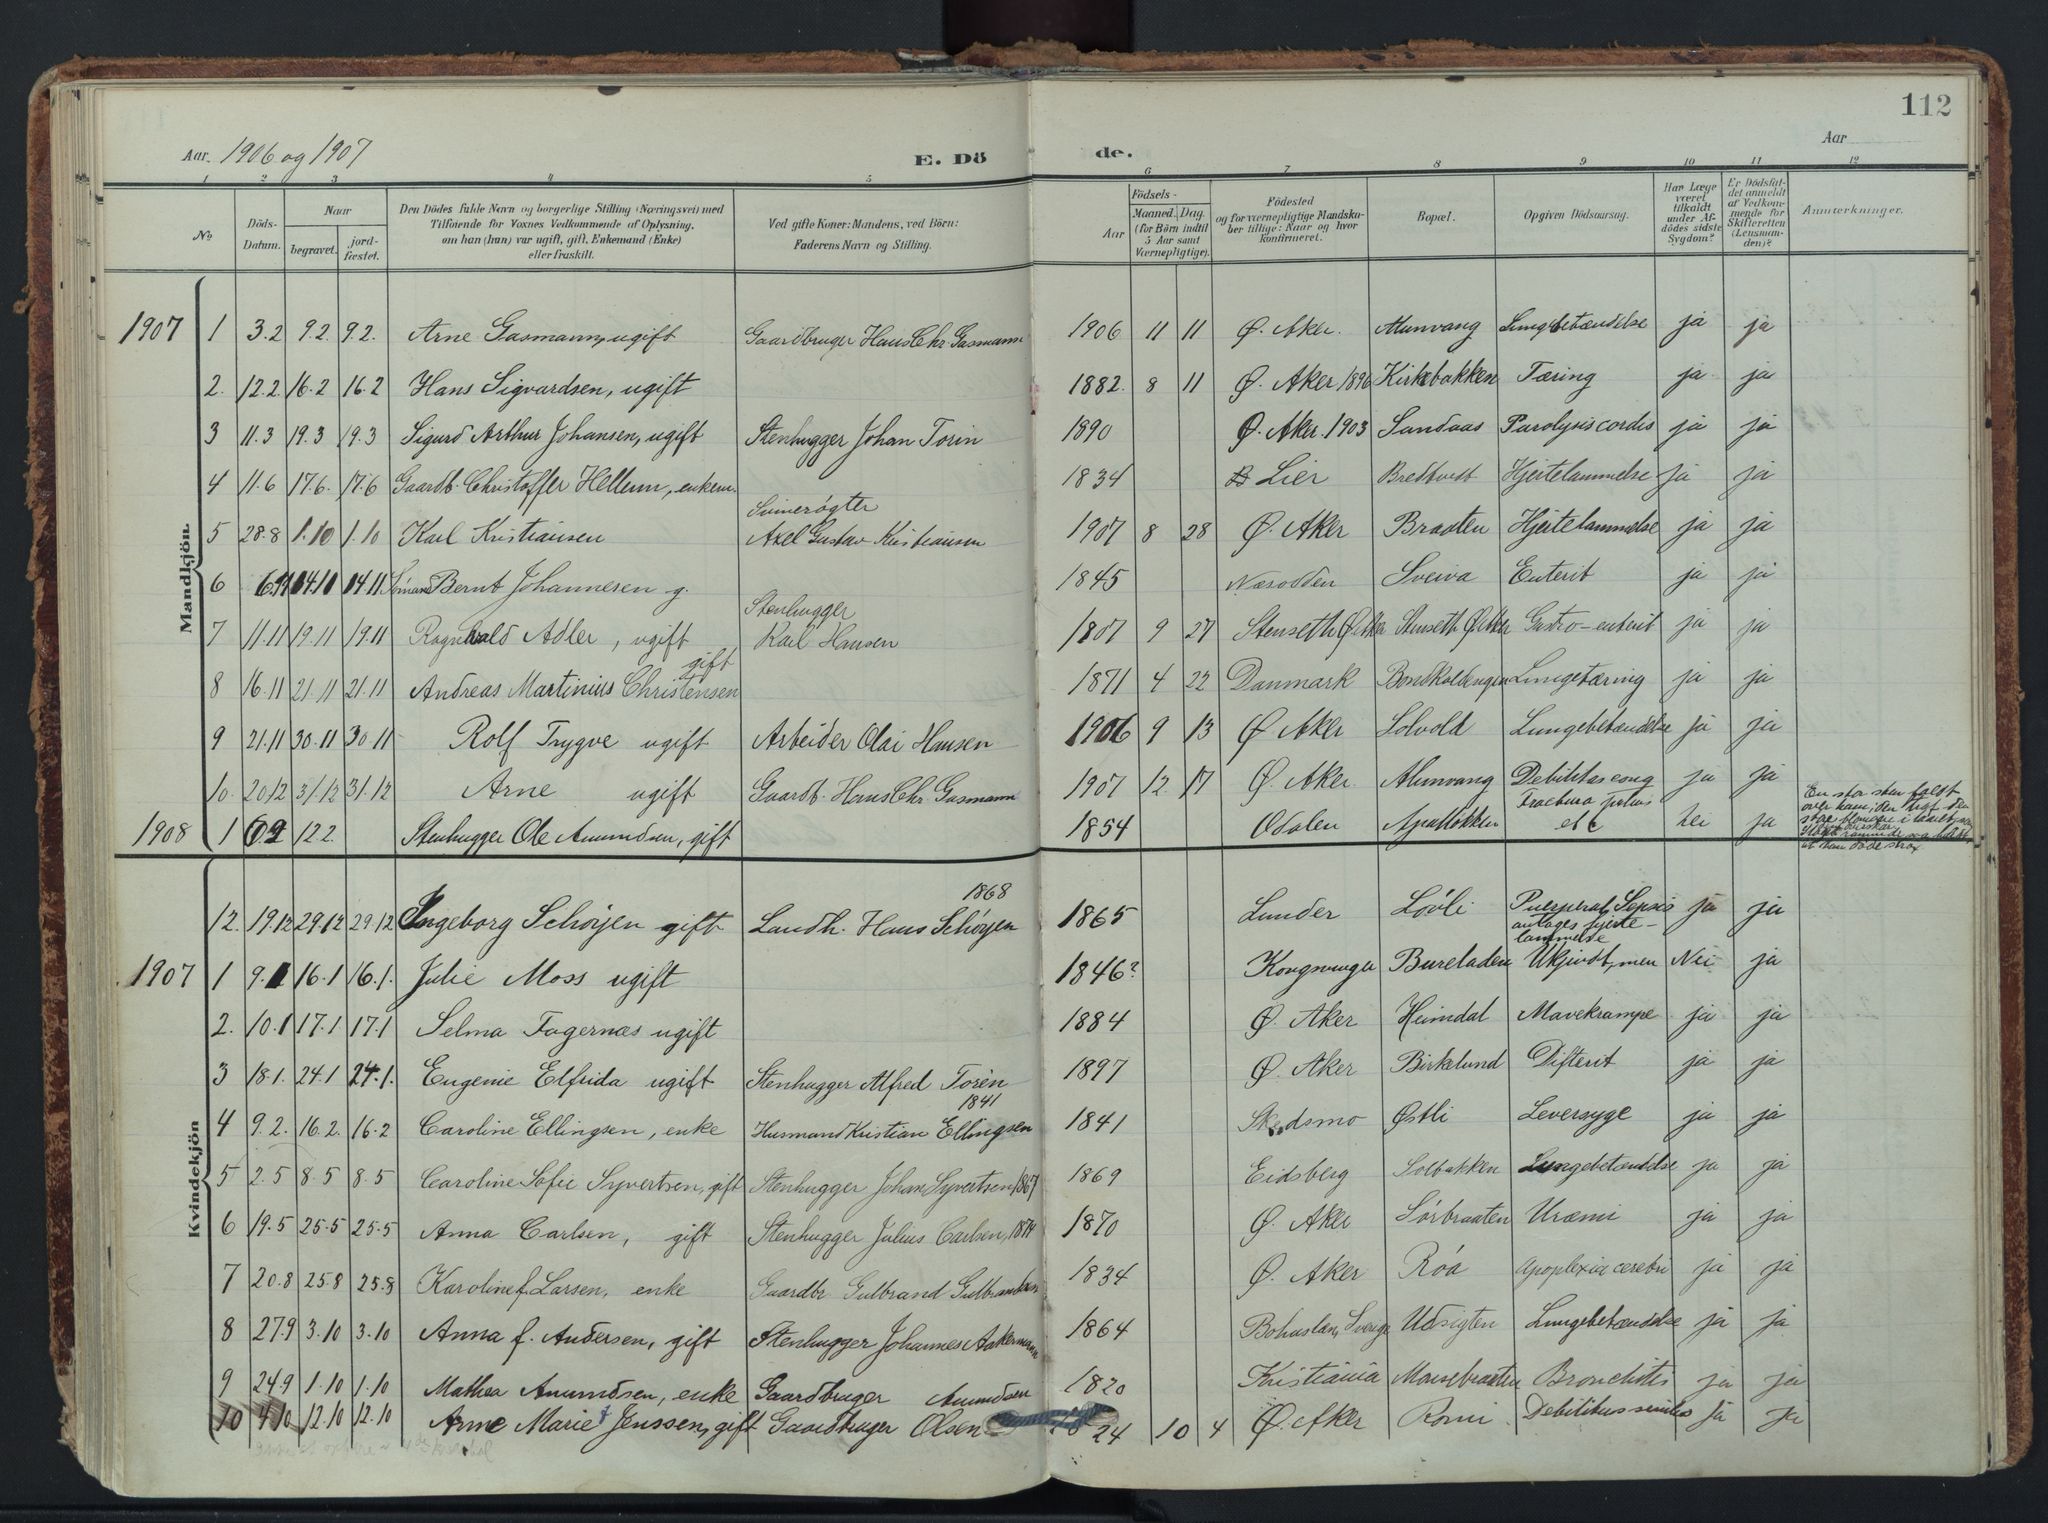 112
Aar. 1906 og 1907 E. Dö de. Aar
1 2 3 4 5 6 7 8 9 10 11 12
No
Döds-Datum.
Naar
begravet. jord-fæstet.
Den Dödes fulde Navn og borgerlige Stilling (Næringsvei) med
Tilföiende for Voxnes Vedkommende af Oplysning,
om han (hun) var ugift, gift, Enkemand (Enke)
eller fraskilt.
Ved gifte Koner: Mandens, ved Börn:
Faderens Navn og Stilling.
Födsels-
Aar
Maaned. Dag.
(for Börn indtil
5 Aar samt
Værnepligtige).
Födested
og for værnepligtige Mandska-
ber tillige: Naar og hvor
konfirmeret.
Bopæl.
Opgiven Dödsaarsag.
Har Læge
været
tilkaldt
under Af-
dödes sidste
Sygdom?
Er Dödsfal-
det anmeldt
af Vedkom-
mende for
Skifteretten
(Lensman-
den)?
Anmærkninger.
Mandkjön.
1907 1 3.2 9.2 9.2. Arne Gasmann, ugift Gaardbruger Hans Chr. Gasmann 1906 11 11 Ø. Aker. Alunvang Lungebetændelse ja ja
2. 12.2 16.2 16.2 Hans Sigvardsen, ugift 1882. 8 11 Ø. Aker 1896 Kirkebakken Tæring ja ja
3 11.3 19.3 19.3 Sigurd Arthur Johansen, ugift Stenhugger Johan Torin 1890 Ø. Aker. 1903 Sandaas Paralysis cordis ja ja
4 11.6 17.6. 17.6 Gaardb. Christoffer Hellum, enkem. 1834 Lier Bredtvedt Hjertelammelse ja ja
Svinerøgter
5 28.8 1.10 1.10 Karl Kristiansen Axel Gustav Kristiansen 1907 8 28 Ø. Aker Braaten Hjertelammelse ja ja
6 6.11 14.11 14.11 Bernt Johannesen g. 1845 Næsodden Sveiva Enterit ja ja
Stenhugger
7 11.11 19.11 19.11 Ragnvald Adler, ugift Karl Hansen 1907 9 27 Stenseth Ø Aker Stenseth Ø Aker Gastro-enterit ja ja
gift
8 16.11 21.11 21.11 Andreas Martinius Christensen 1871 4 22 Danmark Lungetæring ja ja
9 21.11 30.11 30.11 Rolf Trygve ugift Arbeider Olai Hansen 1906 9 13 Ø Aker Solvold Lungebetændelse ja ja
10. 20.12 31.12 31.12 Arne ugift Gaardb. Hans Chr. Gasmann 1907 12 17 Ø. Aker Alunvang Debilitas cong ja ja
1908 1 12.2. Stenhugger Ole Amundsen, gift 1854 Odalen Apalløkken Fractura pelvis etc nei ja
En stor sten faldt
over ham,
at han døde strax
Kvindekjön
1868
12. 19.12 29.12 29.12 Ingeborg Schøyen gift Landh. Hans Schøyen 1865 Lunder Løvli Puerperal Sepsis ja ja
antages hjerte-
lammelse
1907 1 9.1 16.1 16.1. Julie Moss ugift 1846? Kongsvinger Bureladen Ukjendt, men Nei ja
2. 10.1 17.1 17.1 Selma Fagernæs ugift 1884 Ø. Aker Heimdal Mavekrampe ja ja
3 18.1. 24.1 24.1. Eugenie Elfrida ugift Stenhugger Alfred Torén 1897 Ø. Aker Birkelund Difterit ja ja
1841
4 9.2. 16.2. 16.2 Caroline Ellingsen, enke Husmand Kristian Ellingsen 1841 Skedsmo Østli Leversyge ja ja
5 2.5 8.5 8.5 Caroline Sofie Syvertsen, gift Stenhugger Johan Syvertsen, 1867 1869 Eidsberg Solbakken Lungebetændelse ja ja
6 19.5 25.5 25.5 Anna Carlsen, gift Stenhugger Julius Carlsen, 1874 1870 Ø. Aker Sørbraaten Uræmi ja ja
7 20.8 25.8 25.8 Karoline f. Larsen, enke Gaardbr Gulbrand Gulbrandsen 1834 Ø. Aker Røa Apoplexia cerebri ja ja
8 27.9 3.10 3.10 Anna f. Andersen, gift Stenhugger Johannes Aakermann 1864 Bohuslän, Sverige Udsigten Lungebetændelse ja ja
9 24.9 1.10 1.10 Mathea Amundsen, enke Gaardbruger Amundsen 1820 Kristiania Mausebraaten Bronchitis ja ja
10 4.10 12.10 12.10 Anne Marie f Jenssen, gift Gaardbruger Olsen 24 10 4 Ø. Aker Romi Debilitus senilis ja ja